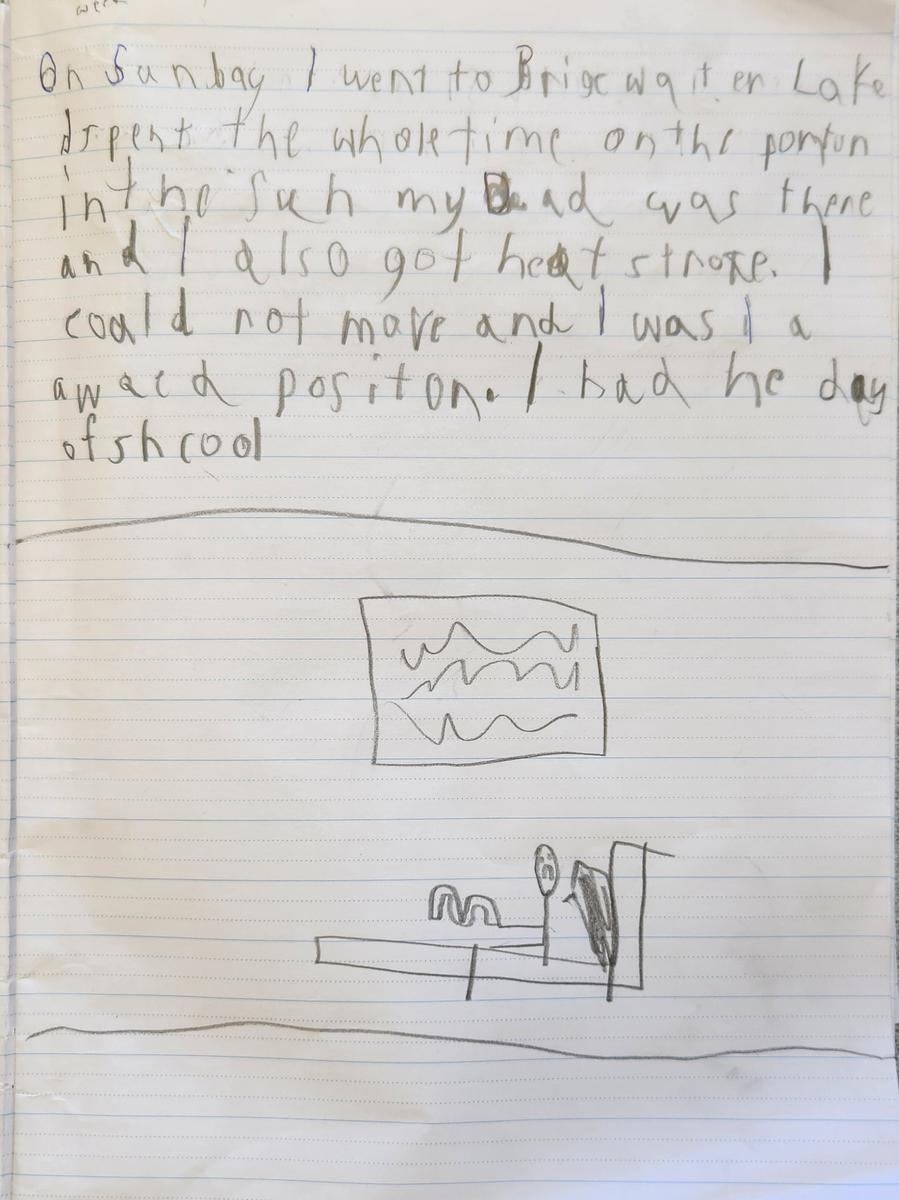 week
On Sunbay I went to Brigcwaiter Lake
I spent the wholetime on the pontun
in the Sun my Dad was there
and I also got heat stroke. I
coald not move and I was I a
awacd positon. I had he day
of shcool